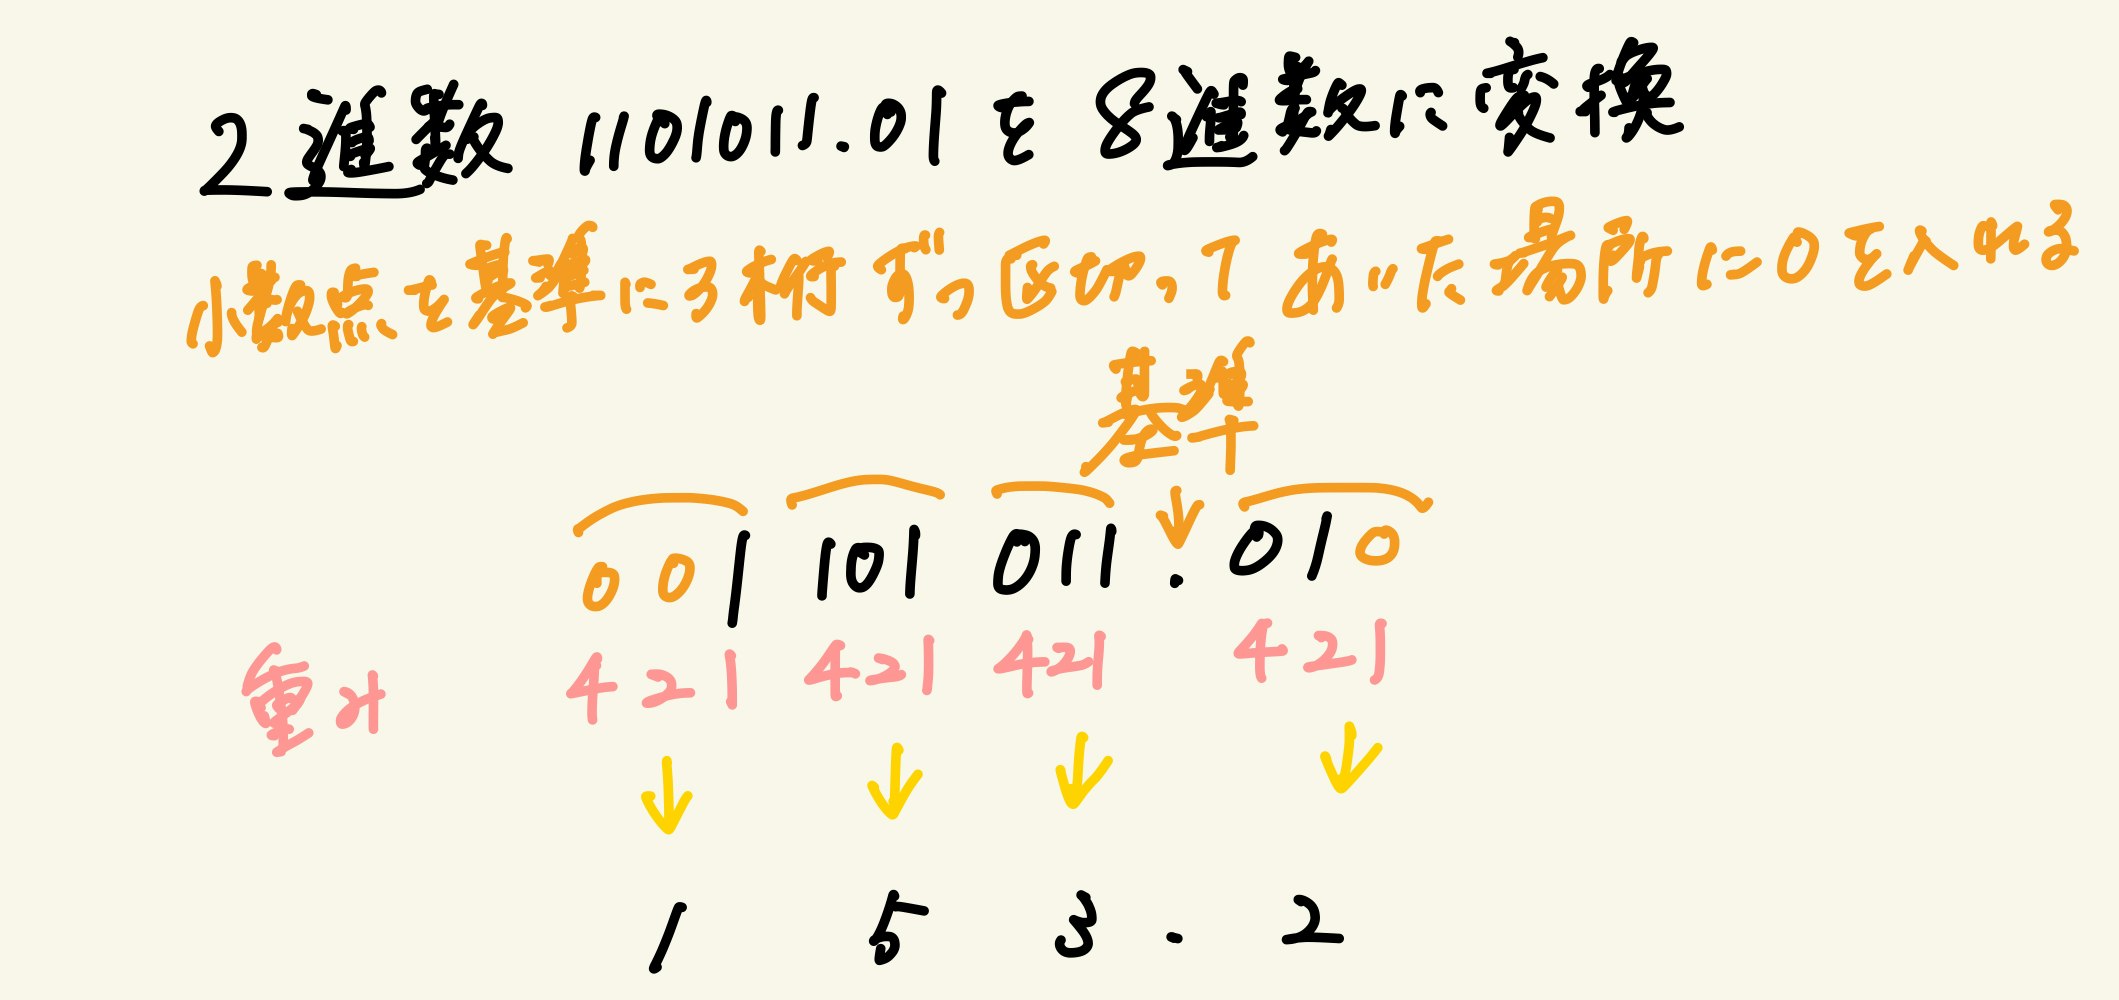 2進数 1101011.01 を 8進数に変換
小数点を基準に3桁ずつ区切ってあいた場所に0を入れる
基準
001 101 011 . 010
重み 421 421 421 421
1 5 3 . 2